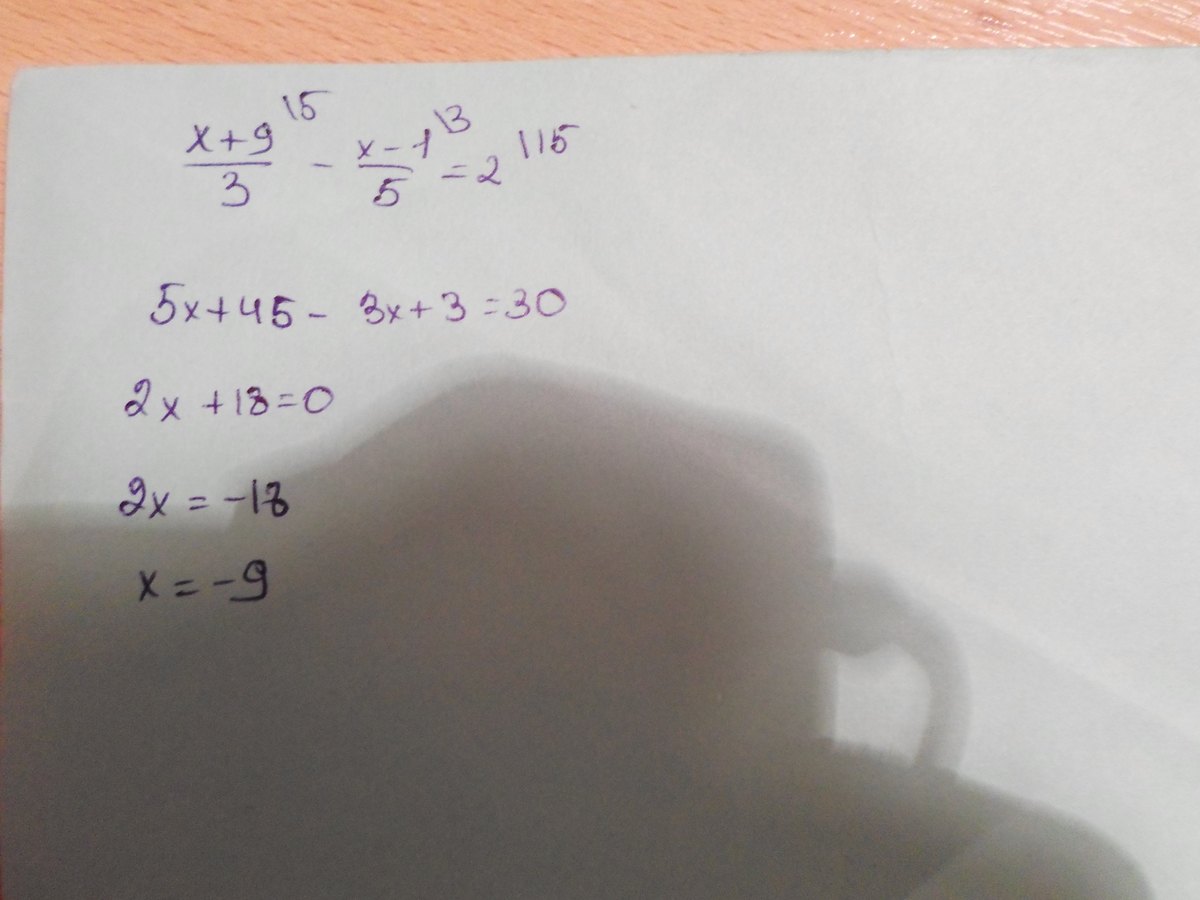 x+9 \5 / 3 - x-1 \3 / 5 = 2 \15
5x+45- 3x+3=30
2x +18=0
2x = -18
x = -9